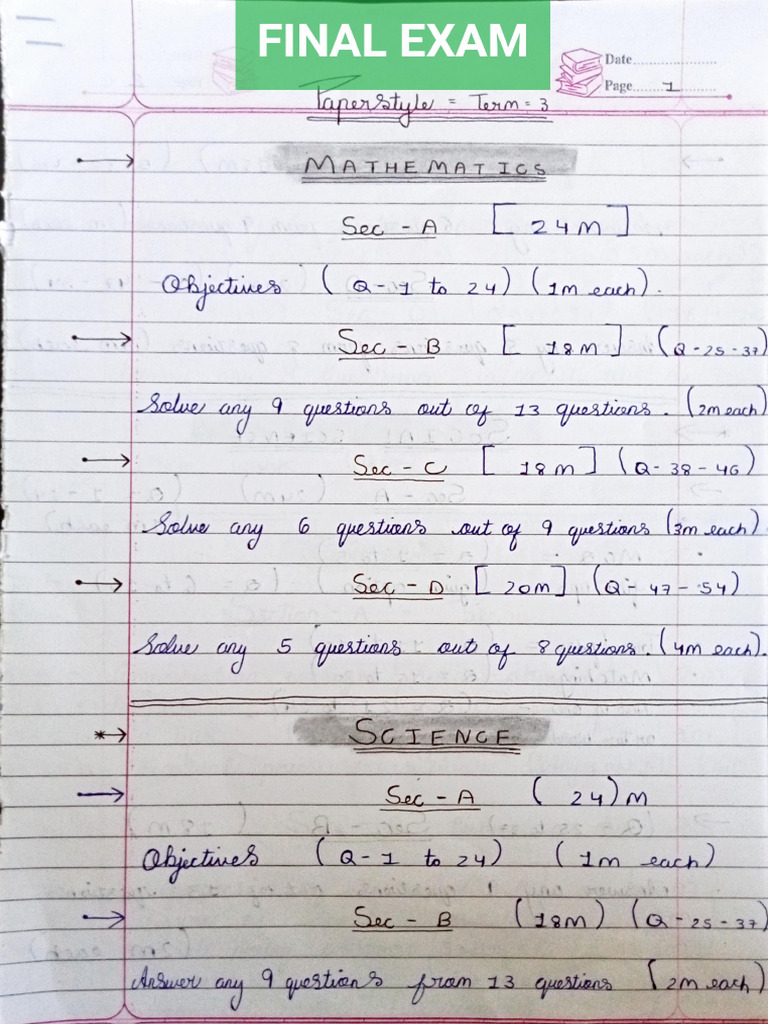 FINAL EXAM
Date..................
Page........1..........
Paperstyle = Term = 3
MATHEMATICS
Sec - A [24M]
Objectives (Q-1 to 24) (1m each).
Sec - B [18M] (Q-25-37)
Solve any 9 questions out of 13 questions. (2m each)
Sec - C [18M] (Q-38-46)
Solve any 6 questions out of 9 questions (3m each)
Sec - D [20M] (Q-47-54)
Solve any 5 questions out of 8 questions. (4m each).
SCIENCE
Sec - A (24)m
Objectives (Q-1 to 24) (1m each)
Sec - B (18m) (Q-25-37)
Answer any 9 questions from 13 questions (2m each)